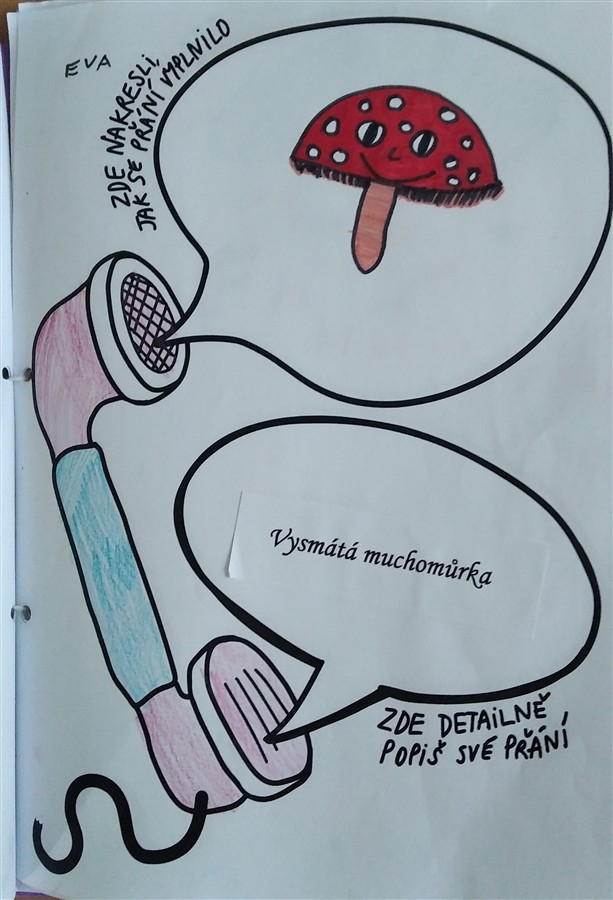 EVA
ZDE NAKRESLI,
JAK SE PŘÁNÍ VYPLNILO
Vysmátá muchomůrka
ZDE DETAILNĚ
POPIŠ SVÉ PŘÁNÍ